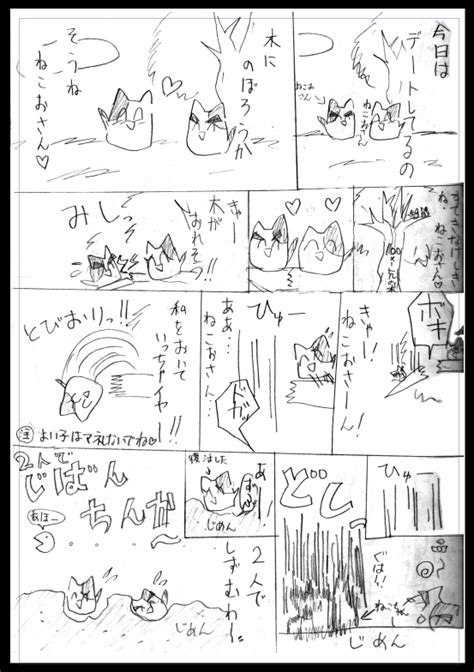 今日は
デートしてるの
ねこおさん
木に
のぼろっか
そうね
ねこおさん♡
すてきなけしき
ね
ねこおさん♡
きゃー
木が
おれそう!!
みしっ
ボキ
きゃー!
ねこおさーん!
ひゅー
ああ…
ねこおさん…
ドガッ
私をおいて
いっちゃイヤー
とびおりっ!!
注 よい子はマネしないでね♡
ひゅー
ぐはっ!
じめん
どどし
復活した
じめん
2人で
しずむわー
2人で
じばん
ちんか〜
あほー
じめん